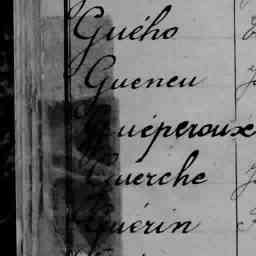 Guého
Gueneu
Guéperoux
Guerche
Guérin